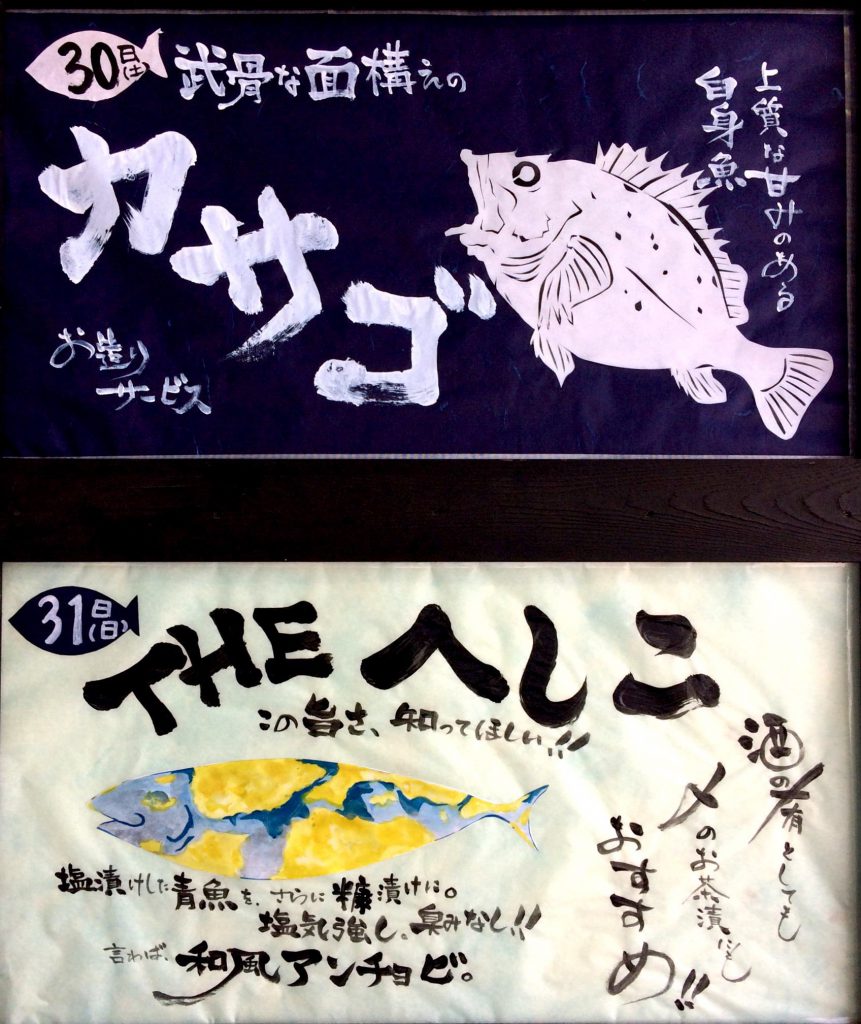 30日(土)
武骨な面構えの
カサゴ
上質な甘みのある
白身魚
お造り
サービス
31日(日)
THE へしこ
この旨さ、知ってほしい!!
塩漬けした青魚を、さらに糠漬けに。
塩気強し、臭みなし!!
言わば、和風アンチョビ。
酒の肴としても
〆のお茶漬にも
おすすめ!!